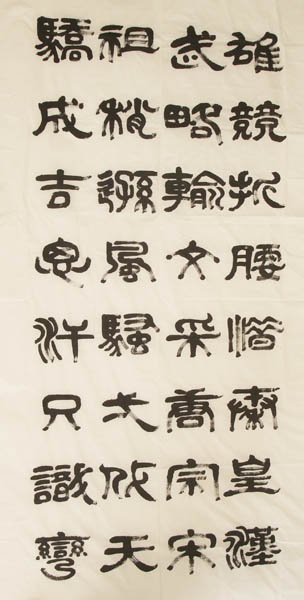 雄競折腰惜秦皇漢
武略輸文采唐宗宋
祖稍遜風騷弌代天
驕成吉思汗只識彎